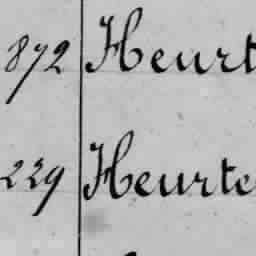 872 Heurt
229 Heurte